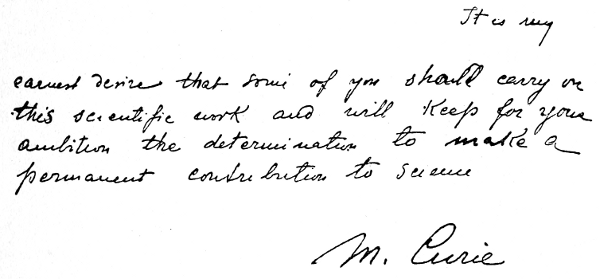 It is my
earnest desire that some of you should carry on
this scientific work and will keep for your
ambition the determination to make a
permanent contribution to science
M. Curie